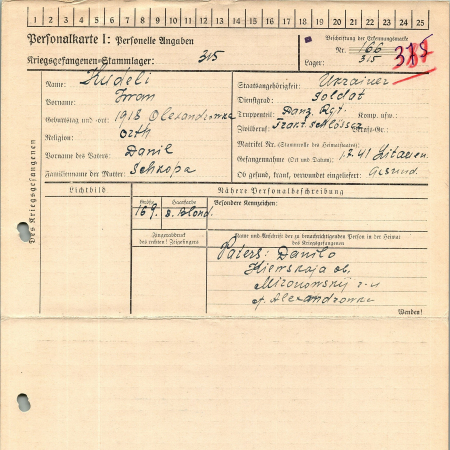 1 2 3 4 5 6 7 8 9 10 11 12 13 14 15 16 17 18 19 20 21 22 23 24 25
Personalkarte I: Personelle Angaben
Beschriftung der Erkennungsmarke
Nr. 166
Kriegsgefangenen-Stammlager: 315
Lager: 315
Des Kriegsgefangenen
Name: Kudeli
Staatsangehörigkeit: Ukrainer
Vorname: Iwan
Dienstgrad: Soldat
Geburtstag und -ort: 1918 Olexandrowka
Truppenteil: Panz. Rgt. Komp. usw.:
Religion: Orth
Zivilberuf: Trakt. Schlosser Berufs-Gr.:
Vorname des Vaters: Danil
Matrikel Nr. (Stammrolle des Heimatstaates):
Gefangennahme (Ort und Datum): 1.7.41 Litauen
Familienname der Mutter: Schkopa
Ob gesund, krank, verwundet eingeliefert: Gesund
Lichtbild
Nähere Personalbeschreibung
Größe Haarfarbe Besondere Kennzeichen:
169. Blond.
Fingerabdruck
des rechten Zeigefingers
Name und Anschrift der zu benachrichtigenden Person in der Heimat
des Kriegsgefangenen
Vaters: Danilo
Kiewskaja ob.
Mironowskij
Alexandrowka
Wenden!